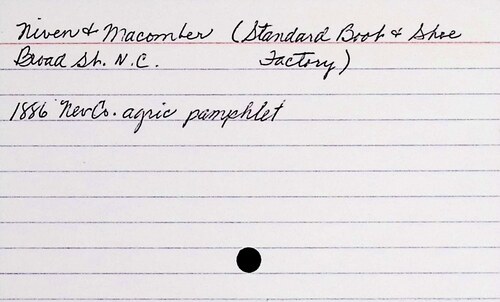 Niven & Macomber (Standard Boot & Shoe
Broad St. N.C. Factory)
1886 Nev Co. agric pamphlet